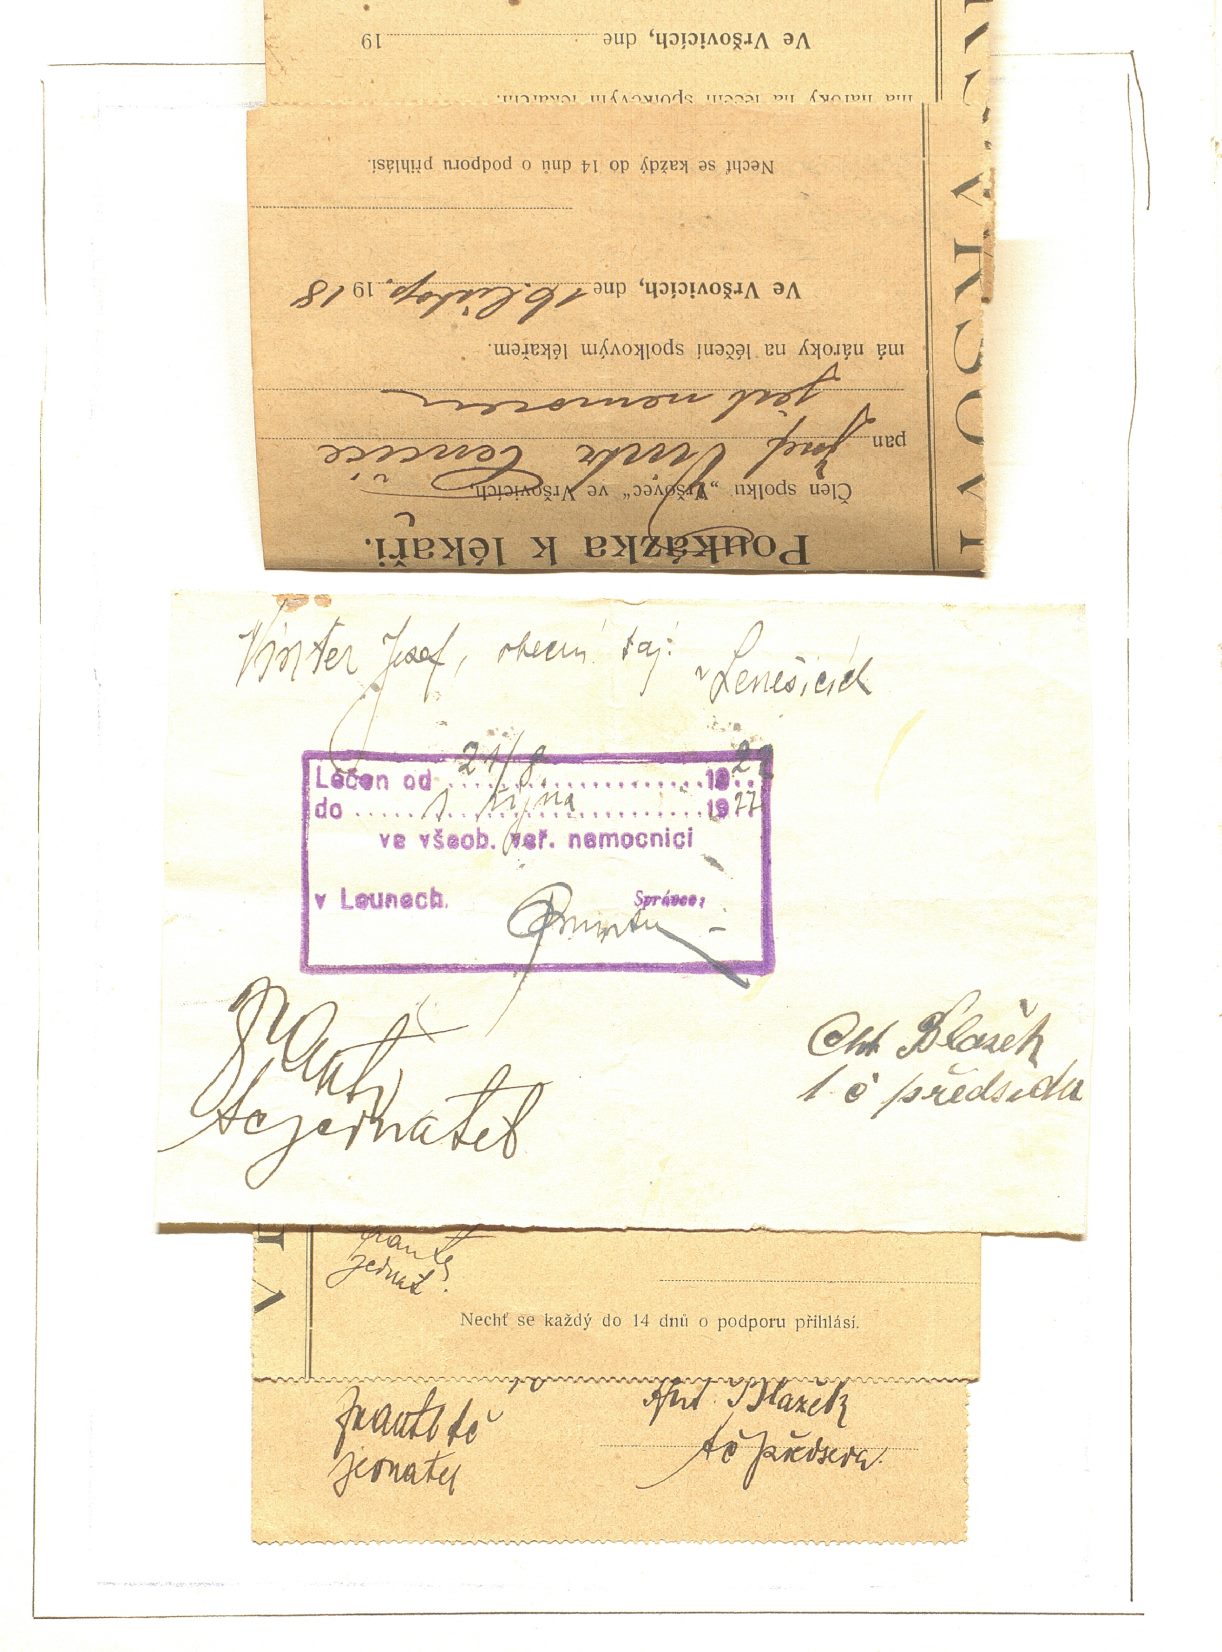 Ve Vršovicích, dne 19
má nároky na léčení spolkovým lékařem.
Poukázka k lékaři.
Člen spolku „Vršovec“ ve Vršovicích,
pan Josef
jest nemocen
má nároky na léčení spolkovým lékařem.
Ve Vršovicích, dne 16. listop. 1918
Nechť se každý do 14 dnů o podporu přihlásí.
Vinter Josef, obecní taj:
v Lenešicích
Léčen od 21/8 1922
do 1 října 1922
ve všeob. veř. nemocnici
v Lounech. Správce:
Ant Blažek
t č předseda
tč jednatel
jednat.
Nechť se každý do 14 dnů o podporu přihlásí.
Ant Blažek
tč předseda
tč
jednatel